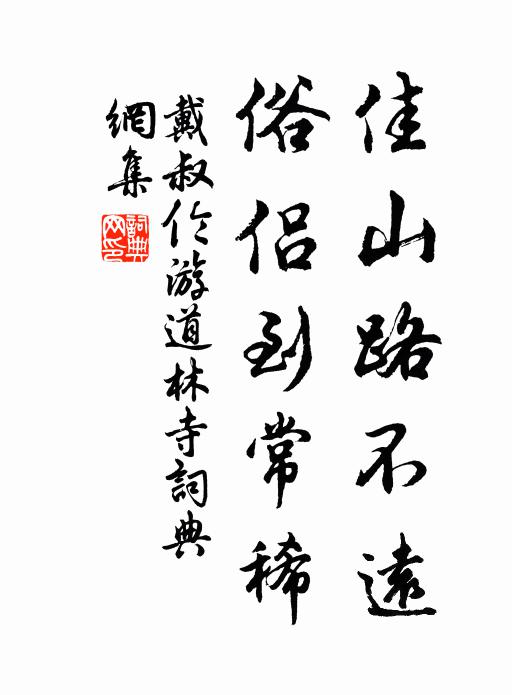 佳山路不遠
俗侣到常稀
戴叔伦游道林寺詞典
網集
詞典
网印